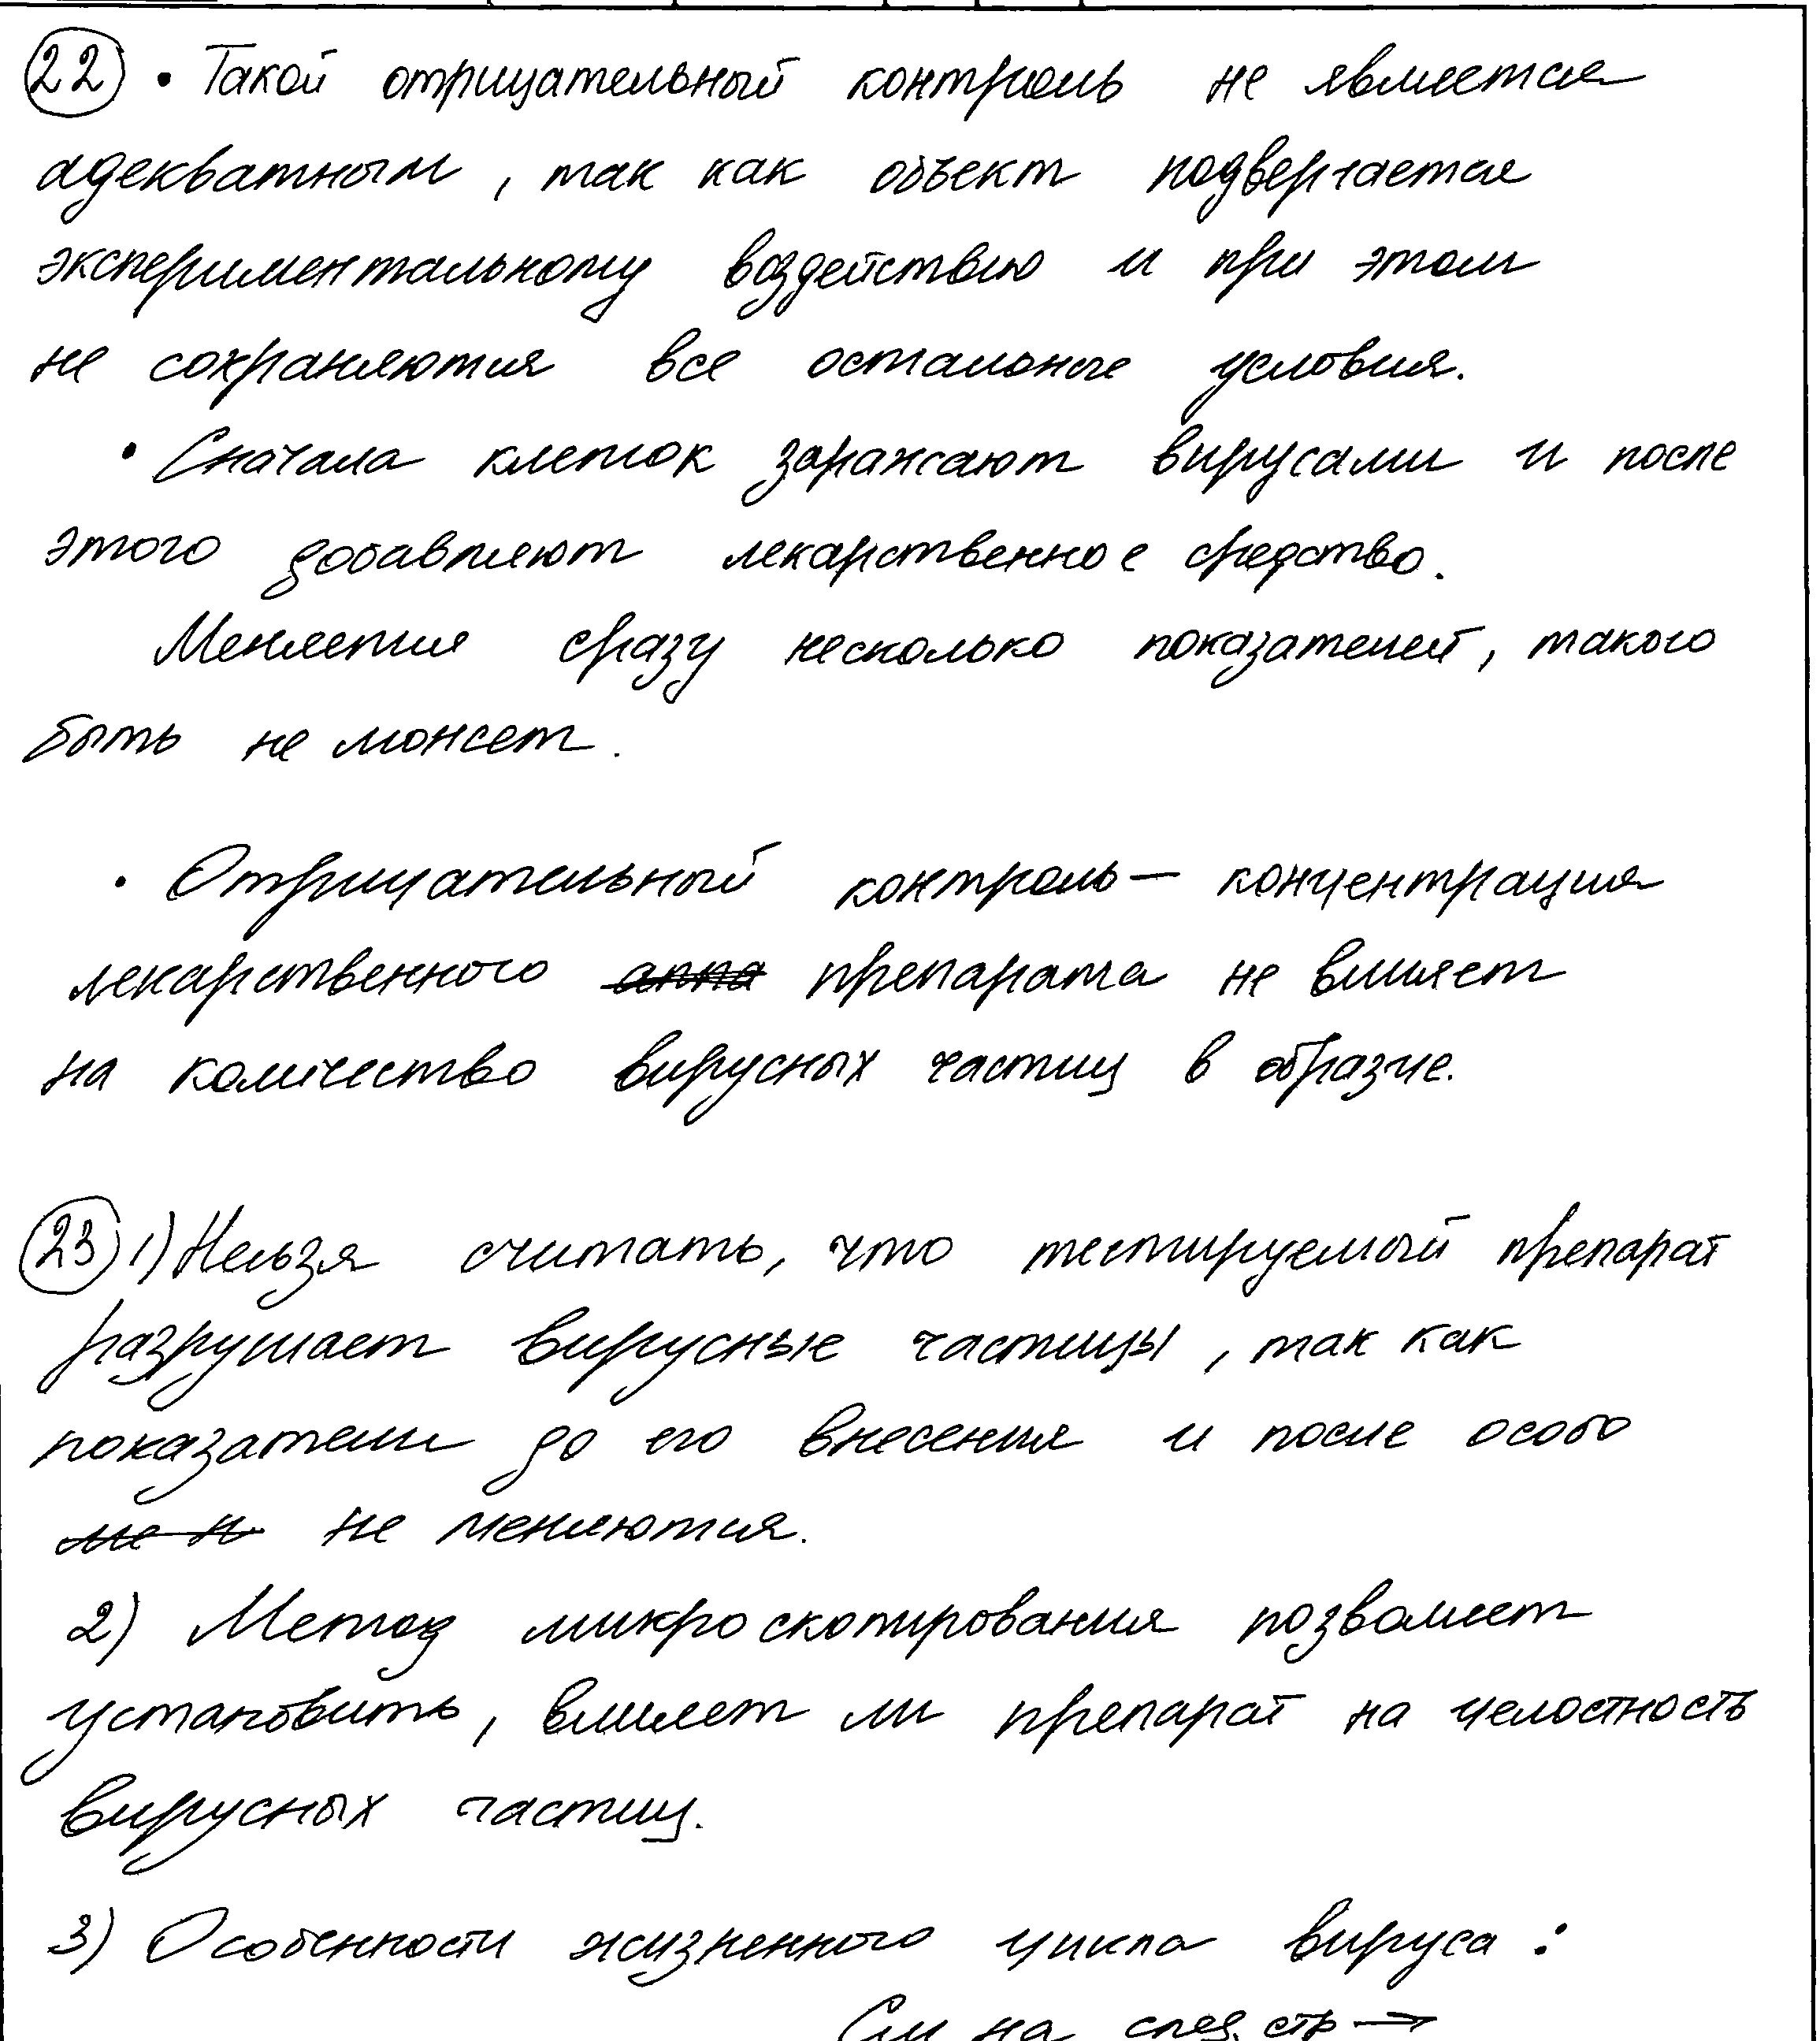 22 • Такой отрицательный контроль не является
адекватным, так как объект подвергается
экспериментальному воздействию и при этом
не сохраняются все остальные условия.
• Сначала клеток заражают вирусами и после
этого добавляют лекарственное средство.
Меняется сразу несколько показателей, такого
быть не может.
• Отрицательный контроль — концентрация
лекарственного препарата не влияет
на количество вирусных частиц в образце.
23 1) Нельзя считать, что тестируемый препарат
разрушает вирусные частицы, так как
показатели до его внесения и после особо
не меняются.
2) Метод микроскопирования позволяет
установить, влияет ли препарат на целостность
вирусных частиц.
3) Особенности жизненного цикла вируса:
См на след. стр →